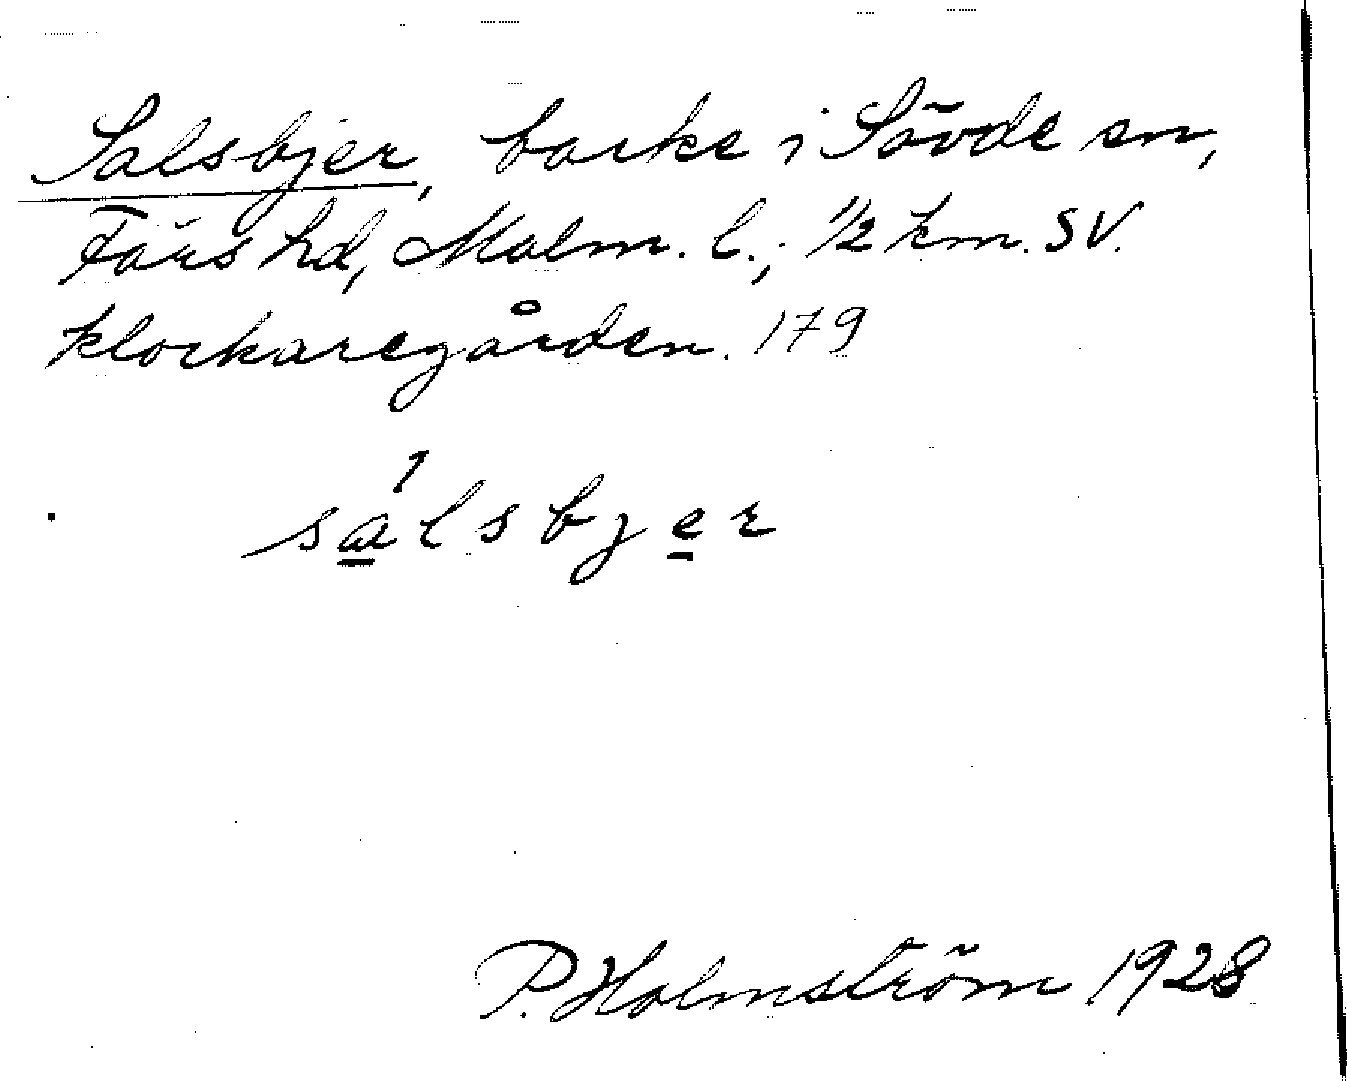 Salsbjer, backe i Sövde sn,
Färs hd, Malm. l.; 1/2 km. SV.
klockaregården. 179
salsbjer
P. Holmström 1928